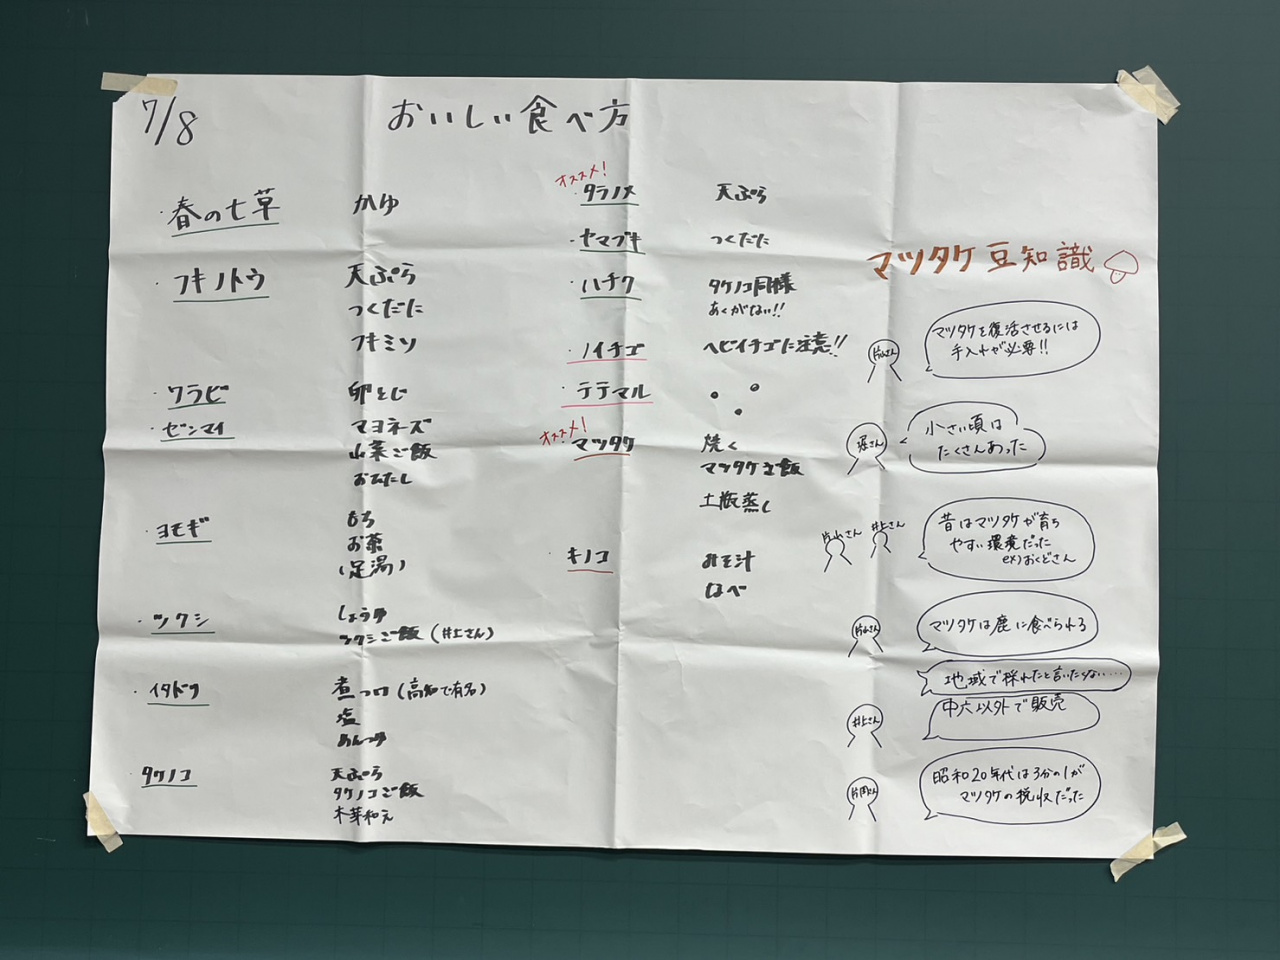 7/8
おいしい食べ方
・春の七草 かゆ
・フキノトウ 天ぷら
つくだに
フキミソ
・ワラビ 卵とじ
・ゼンマイ マヨネーズ
山菜ご飯
おひたし
・ヨモギ もち
お茶
(足湯)
・ツクシ しょうゆ
ツクシご飯(井上さん)
・イタドリ 煮つけ(高知で有名)
塩
めんつゆ
タケノコ 天ぷら
タケノコご飯
木芽和え
オススメ!
・タラノメ 天ぷら
・ヤマブキ つくだに
・ハチク タケノコ同様
あくがない!!
・ノイチゴ ヘビイチゴに注意!!
・テテマル
オススメ!
マツタケ 焼く
マツタケご飯
土瓶蒸し
キノコ みそ汁
なべ
マツタケ豆知識
片山さん
マツタケを復活させるには
手入れが必要!!
堀さん
小さい頃は
たくさんあった
片山さん 井上さん
昔はマツタケが育ち
やすい環境だった
ex)おくどさん
片山さん
マツタケは鹿に食べられる
地域で採れたと言いたくない……
井上さん
中六以外で販売
片岡さん
昭和20年代は3分の1が
マツタケの税収だった